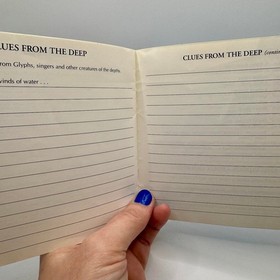 CLUES FROM THE DEEP
from Glyphs, singers and other creatures of the depths
winds of water . . .
CLUES FROM THE DEEP